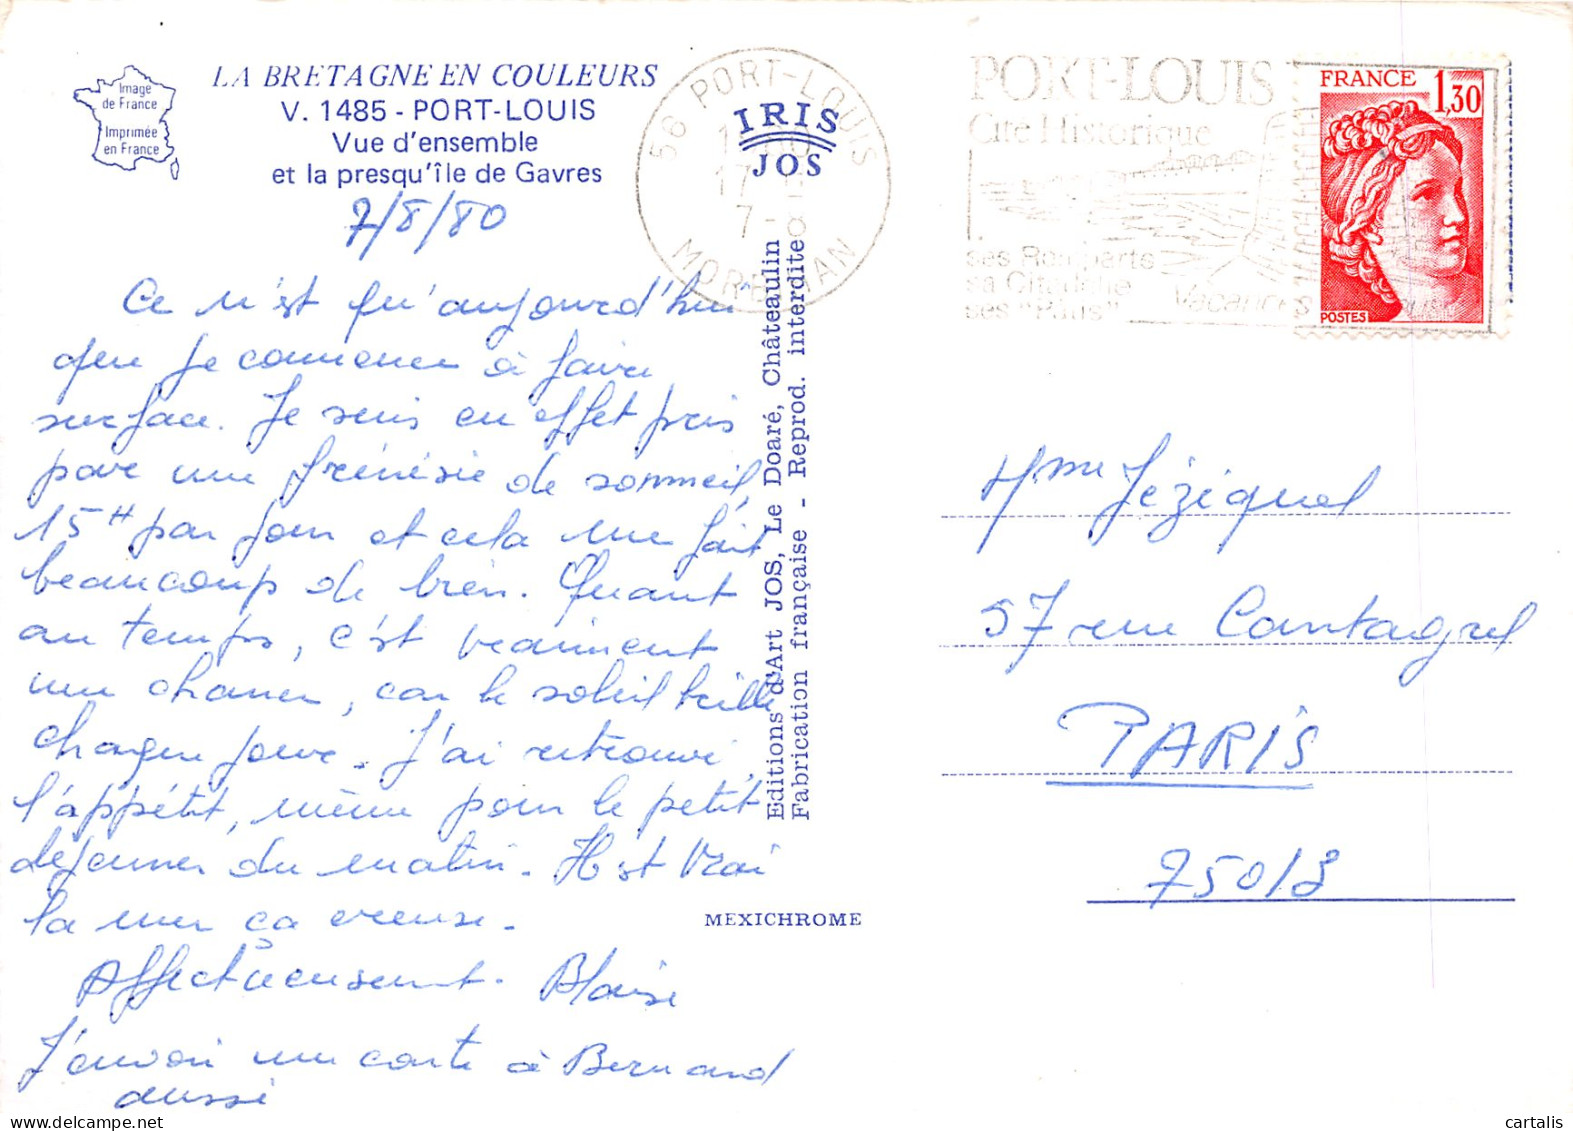 Image
de France
Imprimée
en France
LA BRETAGNE EN COULEURS
V. 1485 - PORT-LOUIS
Vue d'ensemble
et la presqu'île de Gavres
7/8/80
Ce n'est qu'aujourd'hui
que je commence à faire
surface. Je suis en effet pris
par une frénésie de sommeil,
15H par jour et cela me fait
beaucoup de bien. Quant
au temps, c'est vraiment
une chance, car le soleil brille
chaque jour. J'ai retrouvé
l'appétit, même pour le petit
déjeuner du matin. Il est vrai
la mer ça creuse.
Affectueusement. Blaise
J'envoie une carte à Bernard
aussi
IRIS
JOS
56 PORT-LOUIS
17
7-8
MORBIHAN
Editions d'Art JOS, Le Doaré, Châteaulin
Fabrication française - Reprod. interdite
MEXICHROME
PORT-LOUIS
Cité Historique
ses Remparts
sa Citadelle
ses "Pâtis"
Vacances
FRANCE
1,30
POSTES
Mme Jézéquel
57 rue Cantagrel
PARIS
75013
cartalis